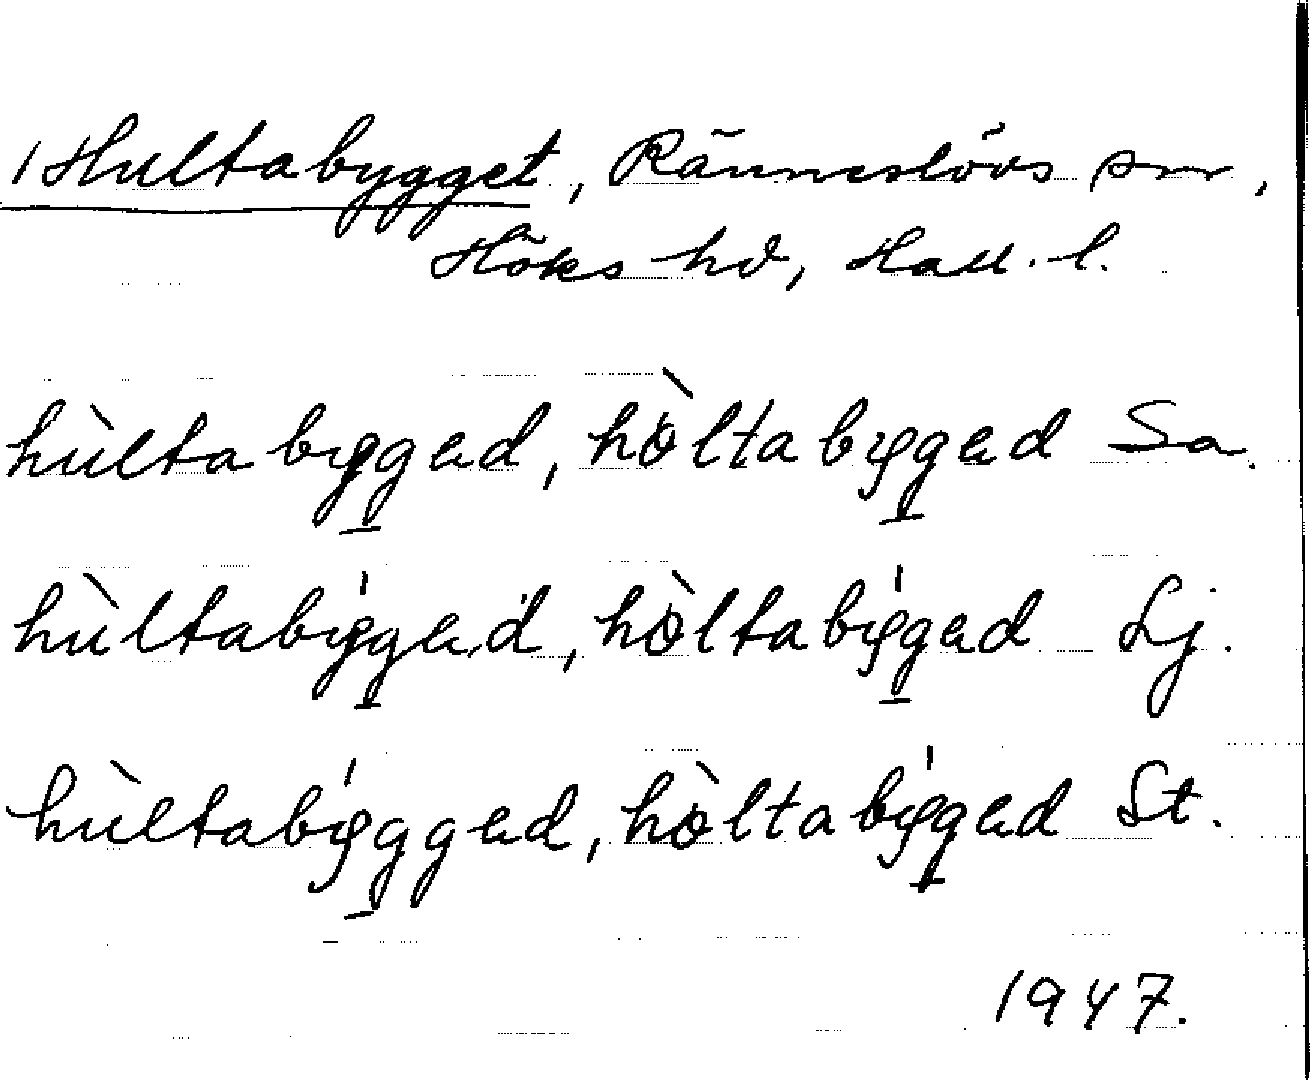 1 Hultabygget, Ränneslövs sn,
Höks hd, Hall. l.
hùltabyged, hòltabyged Sa.
hùltabýged, hòltabýged Lj.
hùltabýgged, hòltabýged St.
1947.